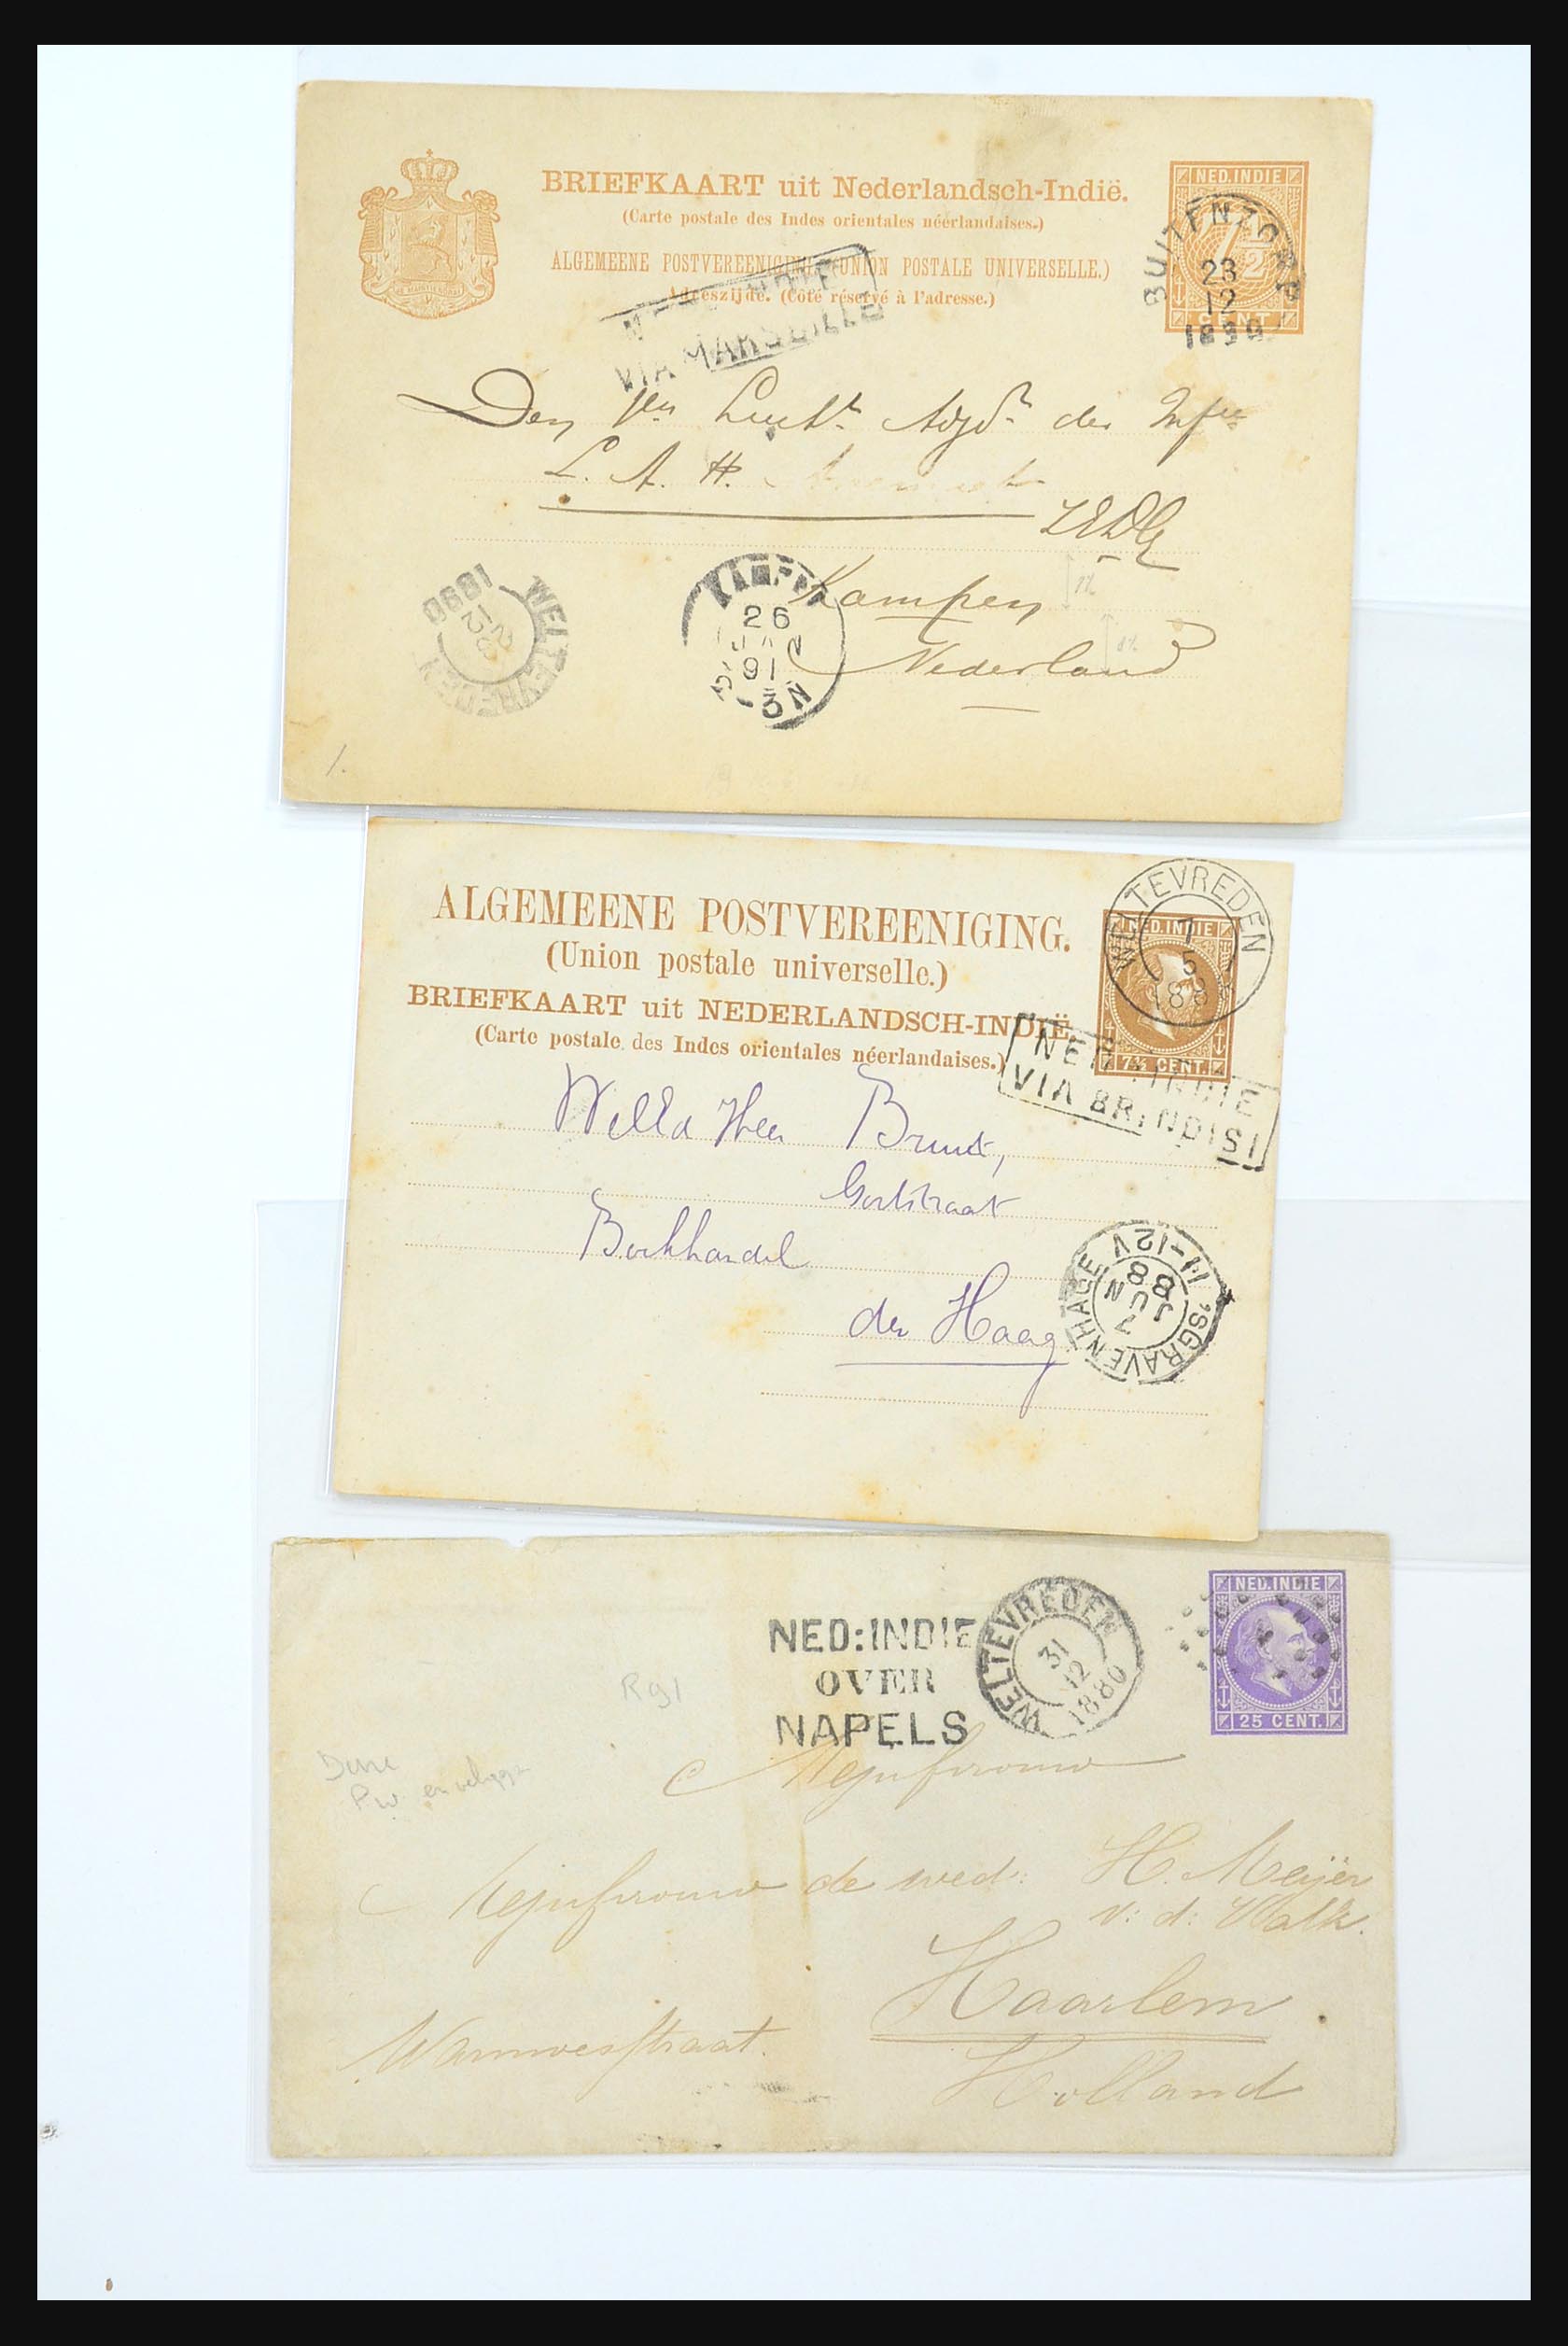 BRIEFKAART uit Nederlandsch-Indië.
(Carte postale des Indes orientales néerlandaises.)
ALGEMEENE POSTVEREENIGING (UNION POSTALE UNIVERSELLE.)
Adreszijde. (Côté réservé à l'adresse.)
NED.INDIE
7½
CENT
BUITENZORG
23
12
1890
VIA MARSEILLE
Den
der Infie
L. A. H.
ZEDG
Kampen
Nederland
WELTEVREDEN
12
1890
KAMPEN
26
JAN
91
3N
1.
ALGEMEENE POSTVEREENIGING.
(Union postale universelle.)
BRIEFKAART uit NEDERLANDSCH-INDIË
(Carte postale des Indes orientales néerlandaises.)
NED.INDIE
7½ CENT.
WELTEVREDEN
7
5
188
NED. INDIE
VIA BRINDISI
Heer
Boekhandel
den Haag
'SGRAVENHAGE
11-12V
7
JUN
88
NED.INDIE
25 CENT.
NED:INDIE
OVER
NAPELS
WELTEVREDEN
31
12
1880
R91
Mejufvrouw
Mejufvrouw de wed: H. Meijer
v: d: Walk.
Haarlem.
Warmoesstraat.
Holland